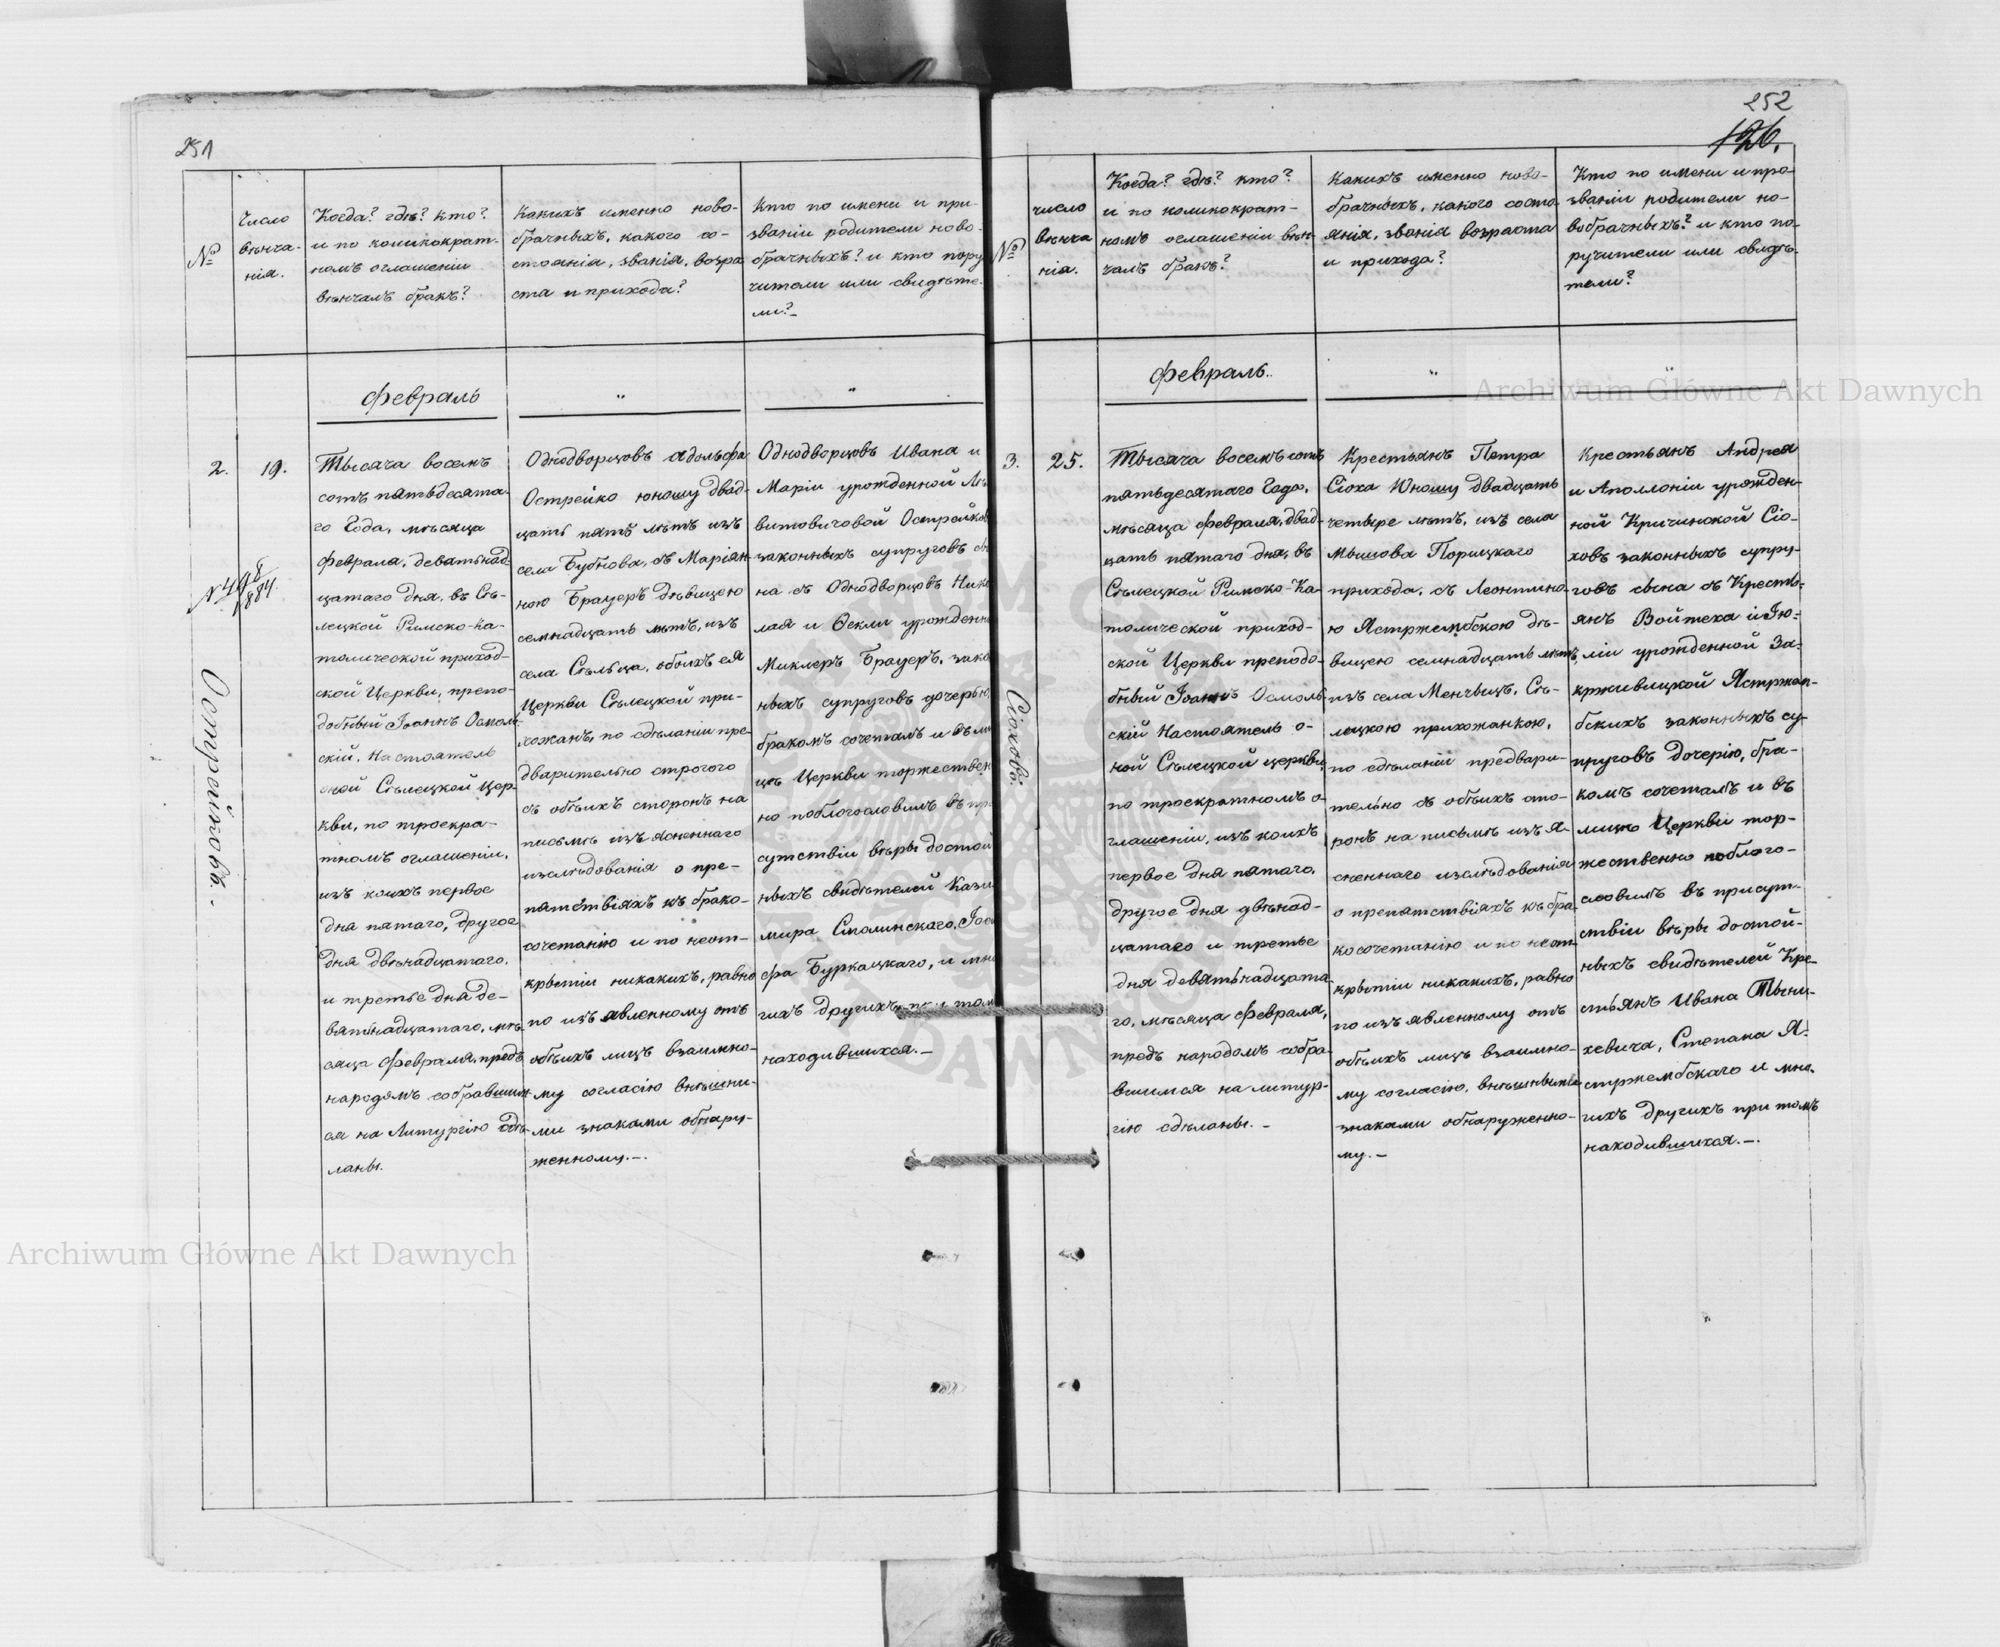 251
№
Число
вѣнча-
нія.
Когда? гдѣ? кто?
и по коликократ-
номъ оглашеніи
вѣнчалъ бракъ?
Какихъ именно ново-
брачныхъ, какого со-
стоянія, званія, возра
ста и прихода?
Кто по имени и при-
званіи родители ново-
брачныхъ? и кто пору
чители или свидѣте-
ли?
Февраль
2.
19.
Тысяча восемъ
сотъ пятьдесята-
го Года, мѣсяца
Февраля, девятьнад
цатаго дня, въ Сѣ-
лецкой Римско-Ка-
толической приход-
ской Церкви, препо-
добный Іоаннъ Осмоль-
скій, Настоятель
оной Сѣлецкой Цер-
кви, по троекра-
тномъ оглашеніи,
изъ коихъ первое
дня пятаго, другое
дня двѣнадцатаго,
и третье дня де-
вятнадцатаго, мѣ-
сяца Февраля, предъ
народомъ собравшим
ся на Литургію сдѣ-
ланы.
Однодворцовъ Адольфа
Острейко юношу двад-
цать пять лѣтъ изъ
села Бубнова, съ Маріян-
ною Брауеръ дѣвицею
семнадцать лѣтъ, изъ
села Сѣльца, обоихъ ея
Церкви Сѣлецкой при-
хожанъ, по сдѣланіи пре-
дварительно строгого
съ обѣихъ сторонъ на
письмѣ изъясненнаго
изслѣдованія о пре-
пятствіяхъ къ брако-
сочетанію и по неот-
крытіи никакихъ, равно
по изъявленному отъ
обѣихъ лицъ взаимно-
му согласію внѣшни-
ми знаками обнару-
женному.
Однодворцовъ Ивана и
Маріи урожденной Ле
витовичовой Острейко
законныхъ супруговъ сы
на съ Однодворцовъ Нико
лая и Ѳекли урожденн
Миклеръ Брауеръ, зако
ныхъ супруговъ дочерью,
бракомъ сочеталъ и въ ли
цѣ Церкви торжествен
но поблогословилъ въ пр
сутствіи вѣры достой
ныхъ свидѣтелей Кази
мира Смолинскаго, Іос
фа Буркацкаго, и мно
гихъ другихъ при том
находившихся.
№ 498
1884.
Острейковъ.
252
126.
№
Число
вѣнча
нія.
Когда? гдѣ? кто?
и по коликократ-
номъ оглашеніи вѣн-
чалъ бракъ?
Какихъ именно ново-
брачныхъ, какого состо-
янія, званія возраста
и прихода?
Кто по имени и про-
званіи родители но-
вобрачныхъ? и кто по-
ручители или свидѣ-
тели?
Февраль.
3.
25.
Тысяча восемъ сотъ
пятьдесятаго Года,
мѣсяца Февраля, двад-
цать пятаго дня, въ
Сѣлецкой Римско-Ка-
толической приход-
ской Церкви преподо-
бный Іоаннъ Осмоль-
скій Настоятель о-
ной Сѣлецкой церкви,
по троекратномъ о-
глашеніи, изъ коихъ
первое дня пятаго,
другое дня двѣнад-
цатаго и третье
дня девятьнадцата
го, мѣсяца Февраля,
предъ народомъ собра-
вшимся на литур-
гію сдѣланы.
Крестьянъ Петра
Сіоха Юношу двадцать
четыре лѣтъ, изъ села
Мышова Порицкаго
прихода, съ Леонтино-
ю Ястржембскою дѣ-
вицею семнадцать лѣтъ,
изъ села Менчыцъ, Сѣ-
лецкою прихожанкою,
по сдѣланіи предвари-
тельно съ обѣихъ сто-
ронъ на письмѣ изъя-
сненнаго изслѣдованія
о препятствіяхъ къ бра-
косочетанію и по неот-
крытіи никакихъ, равно
по изъявленному отъ
обѣихъ лицъ взаимно-
му согласію, внѣшными
знаками обнаруженно-
му.
Крестьянъ Андрея
и Аполлоніи урожден-
ной Кричинской Сіо-
ховъ законныхъ супру-
говъ сына съ Кресть-
янъ Войтеха и Ію-
ліи урожденной За-
крживицкой Ястржем-
бскихъ законныхъ су-
пруговъ дочерію, бра-
комъ сочеталъ и въ
лицѣ Церкви тор-
жественно поблого-
словилъ въ присут-
ствіи вѣры достой-
ныхъ свидѣтелей Кре-
стьянъ Ивана Тыни-
хевича, Степана Я-
стржембскаго и мно-
гихъ другихъ при томъ
находившихся.
Сіоховъ.
Archiwum Główne Akt Dawnych
Archiwum Główne Akt Dawnych